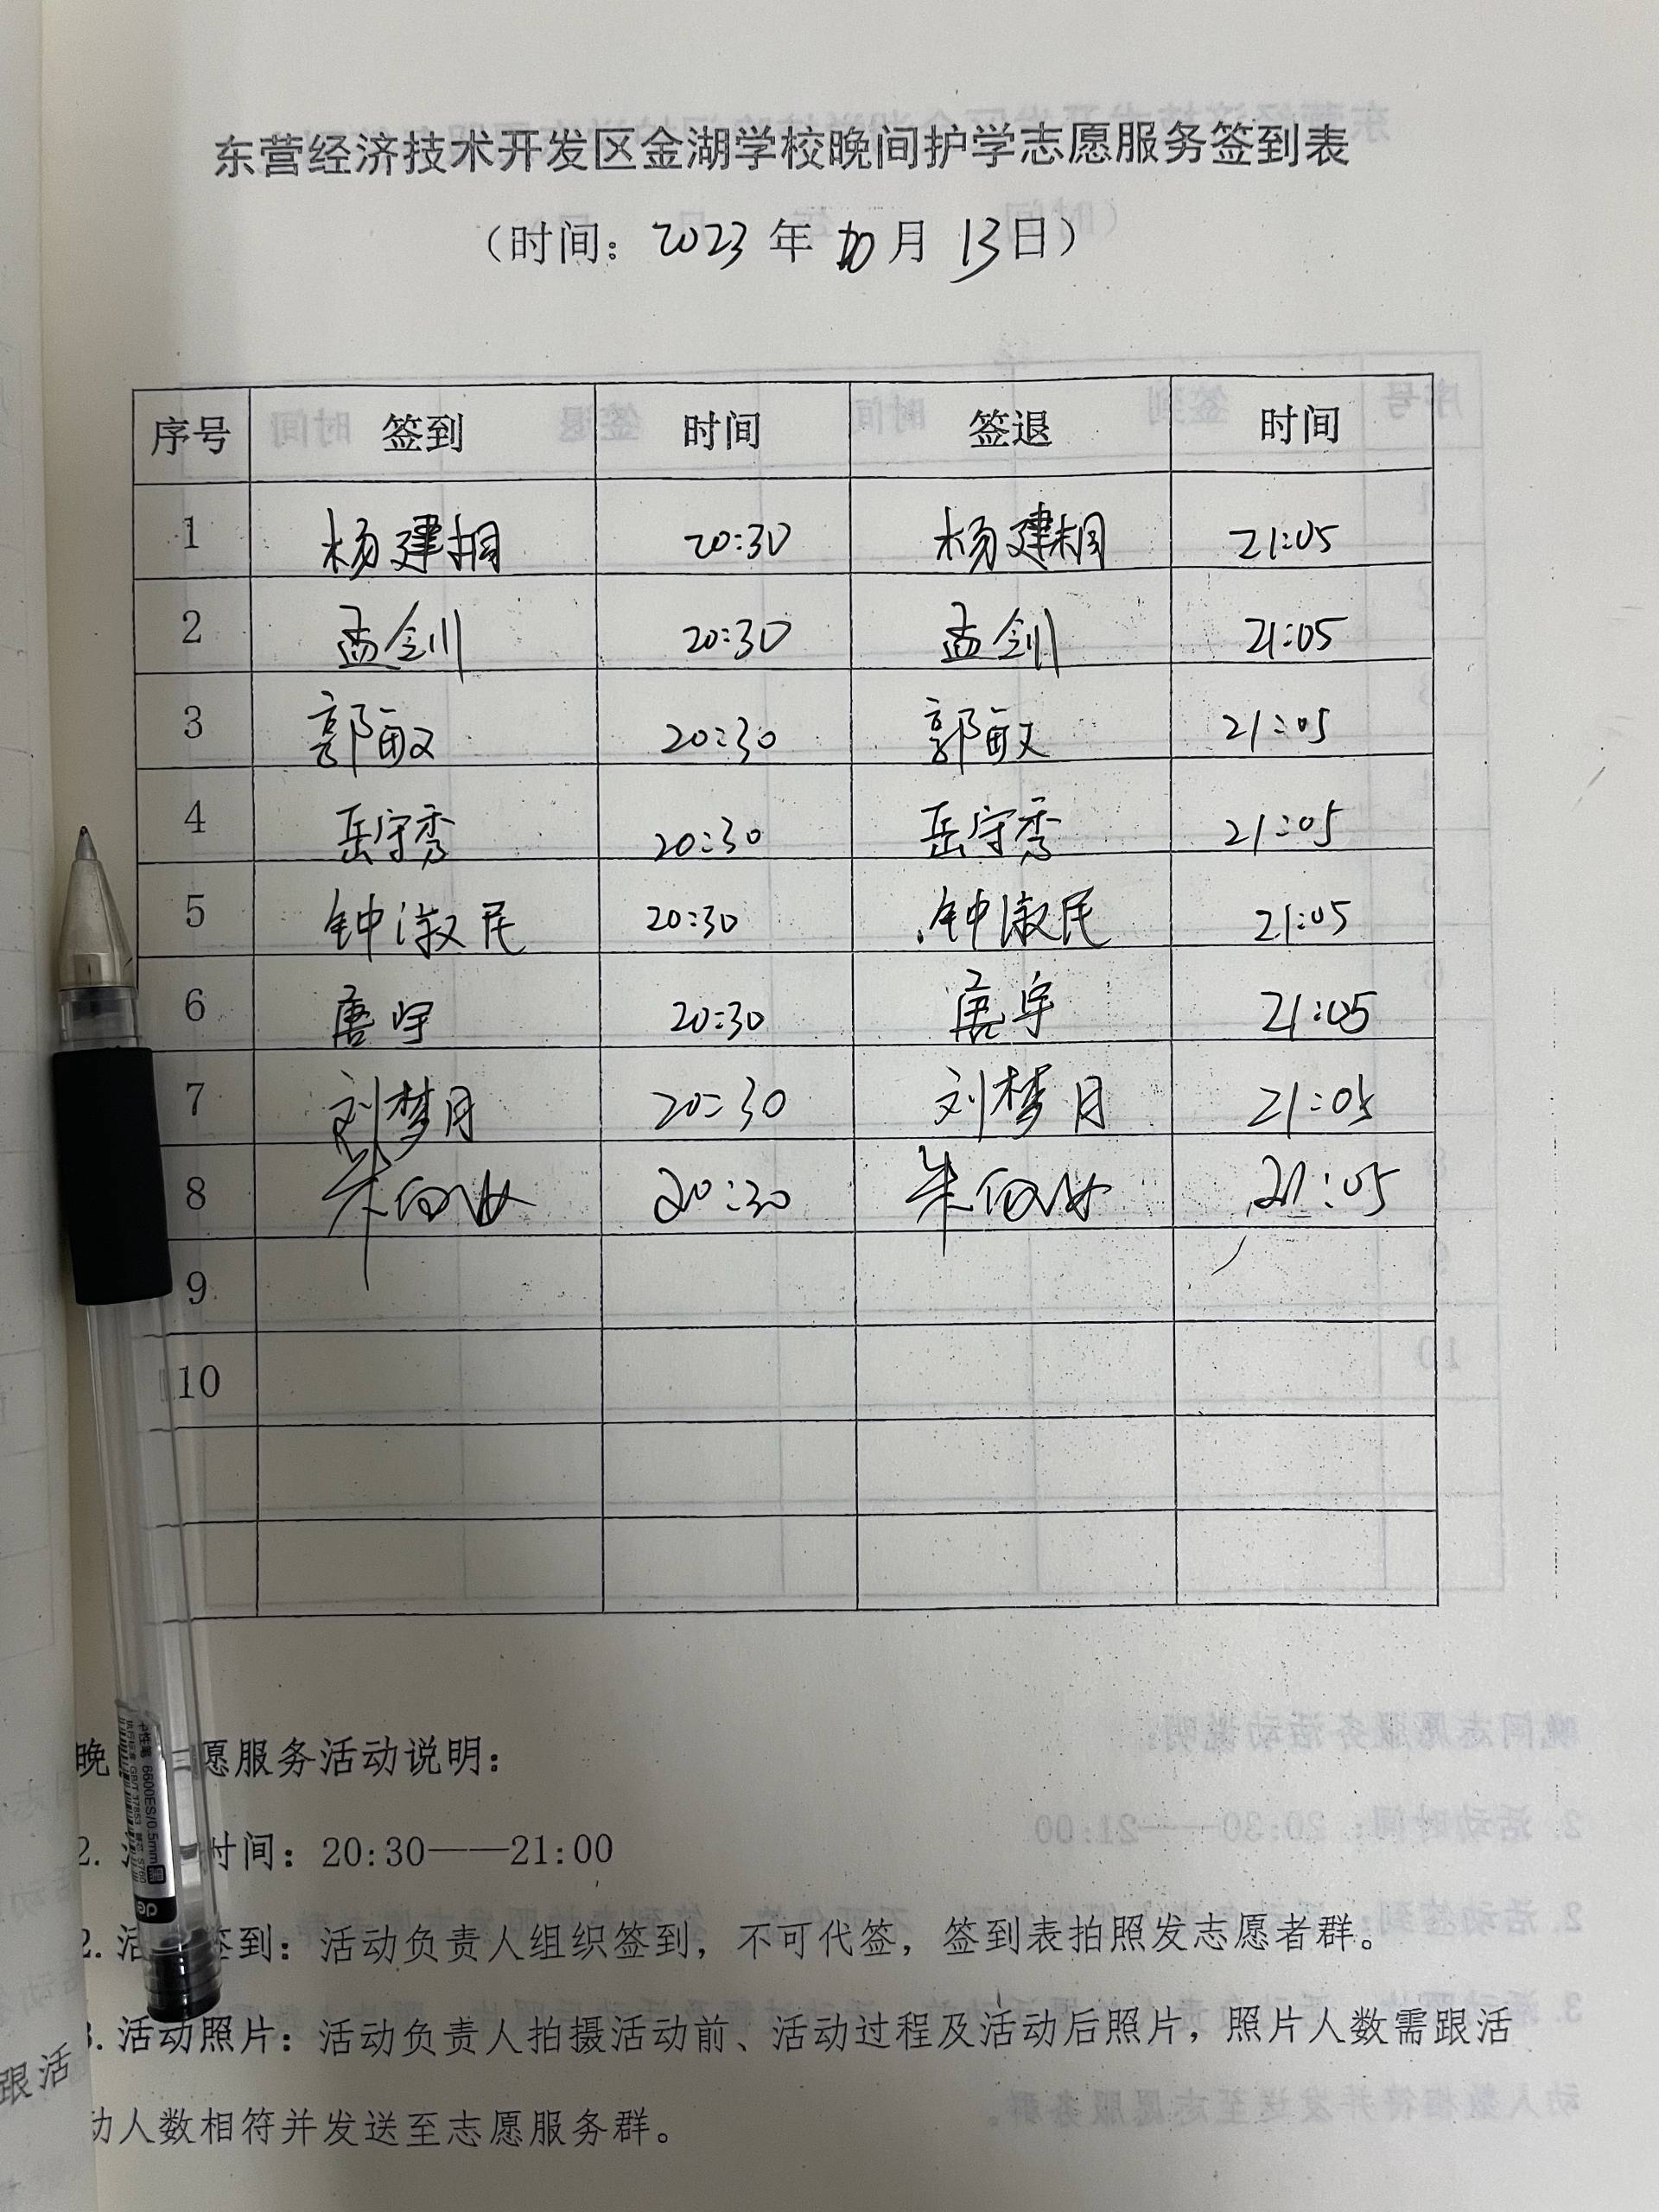 东营经济技术开发区金湖学校晚间护学志愿服务签到表
（时间：2023年10月13日）
序号 签到 时间 签退 时间
1 杨建桐 20:30 杨建桐 21:05
2 孟剑 20:30 孟剑 21:05
3 郭敏 20:30 郭敏 21:05
4 岳守秀 20:30 岳守秀 21:05
5 钟淑民 20:30 钟淑民 21:05
6 唐宇 20:30 唐宇 21:05
7 刘梦月 20:30 刘梦月 21:05
8 朱 20:30 朱 21:05
9
10
晚 愿服务活动说明：
2. 时间：20:30——21:00
2. 活 签到：活动负责人组织签到，不可代签，签到表拍照发志愿者群。
3. 活动照片：活动负责人拍摄活动前、活动过程及活动后照片，照片人数需跟活
动人数相符并发送至志愿服务群。
跟活
中性笔 6600ES/0.5mm